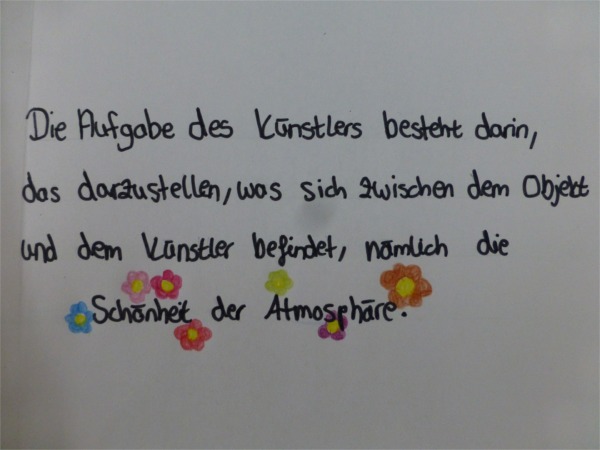 Die Aufgabe des Künstlers besteht darin,
das darzustellen, was sich zwischen dem Objekt
und dem Künstler befindet, nämlich die
Schönheit der Atmosphäre.